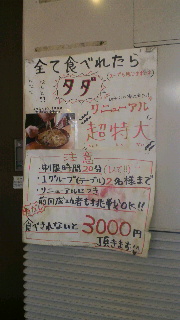 全て食べれたら
タダ
リニューアル
超特大
注意
・制限時間20分
・1グループ(テーブル)2名様まで
・リニューアルにつき
前回成功者も挑戦OK!!
食べきれないと3000円
頂きます